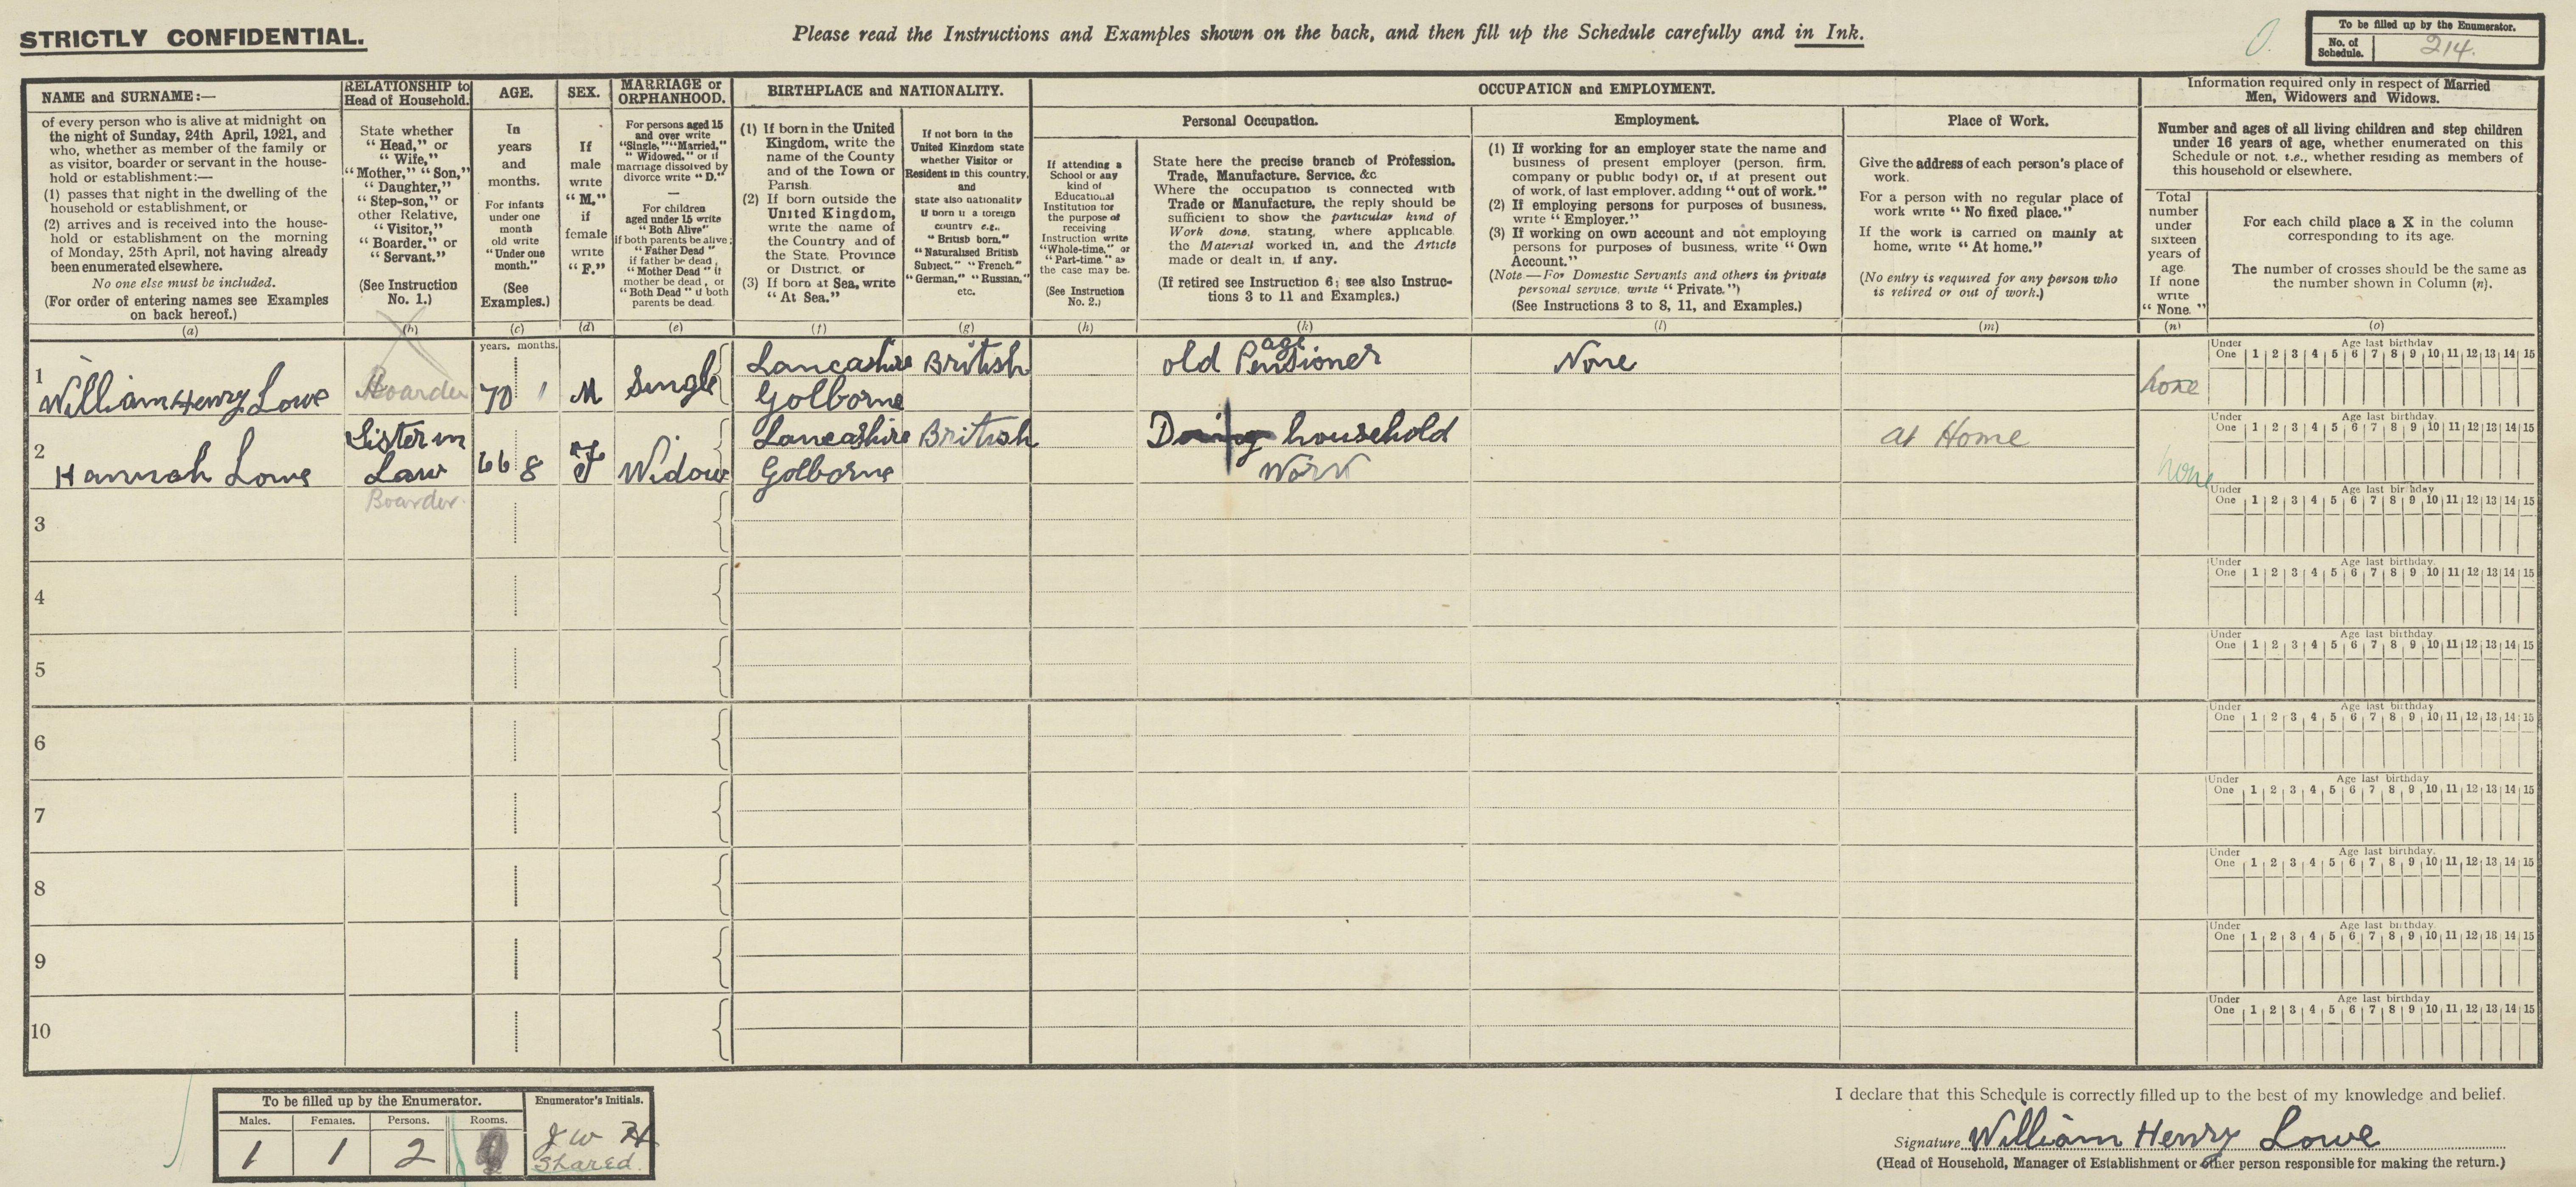 STRICTLY CONFIDENTIAL.
Please read the Instructions and Examples shown on the back, and then fill up the Schedule carefully and in Ink.
To be filled up by the Enumerator.
No. of Schedule. 214.
NAME and SURNAME:—
of every person who is alive at midnight on
the night of Sunday, 24th April, 1921, and
who, whether as member of the family or
as visitor, boarder or servant in the house-
hold or establishment:—
(1) passes that night in the dwelling of the
household or establishment, or
(2) arrives and is received into the house-
hold or establishment on the morning
of Monday, 25th April, not having already
been enumerated elsewhere.
No one else must be included.
(For order of entering names see Examples
on back hereof.)
(a)
RELATIONSHIP to
Head of Household.
State whether
"Head," or
"Wife,"
"Mother," "Son,"
"Daughter,"
"Step-son," or
other Relative,
"Visitor,"
"Boarder," or
"Servant."
(See Instruction
No. 1.)
(b)
AGE.
In
years
and
months.
For infants
under one
month
old write
"Under one
month."
(See
Examples.)
(c)
SEX.
If
male
write
"M."
if
female
write
"F."
(d)
MARRIAGE or
ORPHANHOOD.
For persons aged 15
and over write
"Single," "Married,"
"Widowed," or if
marriage dissolved by
divorce write "D."
—
For children
aged under 15 write
"Both Alive"
if both parents be alive;
"Father Dead"
if father be dead,
"Mother Dead" if
mother be dead, or
"Both Dead" if both
parents be dead.
(e)
BIRTHPLACE and NATIONALITY.
(1) If born in the United
Kingdom, write the
name of the County
and of the Town or
Parish.
(2) If born outside the
United Kingdom,
write the name of
the Country and of
the State, Province
or District, or
(3) If born at Sea, write
"At Sea."
(f)
If not born in the
United Kingdom state
whether Visitor or
Resident in this country,
and
state also nationality
if born in a foreign
country e.g.,
"British born,"
"Naturalised British
Subject," "French,"
"German," "Russian,"
etc.
(g)
OCCUPATION and EMPLOYMENT.
If attending a
School or any
kind of
Educational
Institution for
the purpose of
receiving
Instruction write
"Whole-time," or
"Part-time," as
the case may be.
(See Instruction
No. 2.)
(h)
Personal Occupation.
State here the precise branch of Profession,
Trade, Manufacture, Service, &c
Where the occupation is connected with
Trade or Manufacture, the reply should be
sufficient to show the particular kind of
Work done, stating, where applicable
the Material worked in, and the Article
made or dealt in, if any.
(If retired see Instruction 6; see also Instruc-
tions 3 to 11 and Examples.)
(k)
Employment.
(1) If working for an employer state the name and
business of present employer (person, firm,
company or public body) or, if at present out
of work, of last employer, adding "out of work."
(2) If employing persons for purposes of business,
write "Employer."
(3) If working on own account and not employing
persons for purposes of business, write "Own
Account."
(Note—For Domestic Servants and others in private
personal service, write "Private.")
(See Instructions 3 to 8, 11, and Examples.)
(l)
Place of Work.
Give the address of each person's place of
work.
For a person with no regular place of
work write "No fixed place."
If the work is carried on mainly at
home, write "At home."
(No entry is required for any person who
is retired or out of work.)
(m)
Information required only in respect of Married
Men, Widowers and Widows.
Number and ages of all living children and step children
under 16 years of age, whether enumerated on this
Schedule or not, i.e., whether residing as members of
this household or elsewhere.
Total
number
under
sixteen
years of
age.
If none
write
"None."
(n)
For each child place a X in the column
corresponding to its age.
The number of crosses should be the same as
the number shown in Column (n).
(o)
years. months.
1
William Henry Lowe
Boarder
70 1
M
Single
Lancashire
Golborne
British
old age Pensioner
None
none
Under One Age last birthday 1 2 3 4 5 6 7 8 9 10 11 12 13 14 15
2
Hannah Lowe
Sister in
Law
Boarder
66 8
F
Widow
Lancashire
Golborne
British
Doing household
Work
at Home
none
Under One Age last birthday. 1 2 3 4 5 6 7 8 9 10 11 12 13 14 15
3
Under One Age last birthday 1 2 3 4 5 6 7 8 9 10 11 12 13 14 15
4
Under One Age last birthday. 1 2 3 4 5 6 7 8 9 10 11 12 13 14 15
5
Under One Age last birthday 1 2 3 4 5 6 7 8 9 10 11 12 13 14 15
6
Under One Age last birthday 1 2 3 4 5 6 7 8 9 10 11 12 13 14 15
7
Under One Age last birthday 1 2 3 4 5 6 7 8 9 10 11 12 13 14 15
8
Under One Age last birthday. 1 2 3 4 5 6 7 8 9 10 11 12 13 14 15
9
Under One Age last birthday 1 2 3 4 5 6 7 8 9 10 11 12 13 14 15
10
Under One Age last birthday 1 2 3 4 5 6 7 8 9 10 11 12 13 14 15
To be filled up by the Enumerator.
Males. Females. Persons. Rooms.
1 1 2
Enumerator's Initials.
J W H
Shared.
I declare that this Schedule is correctly filled up to the best of my knowledge and belief.
Signature William Henry Lowe
(Head of Household, Manager of Establishment or other person responsible for making the return.)